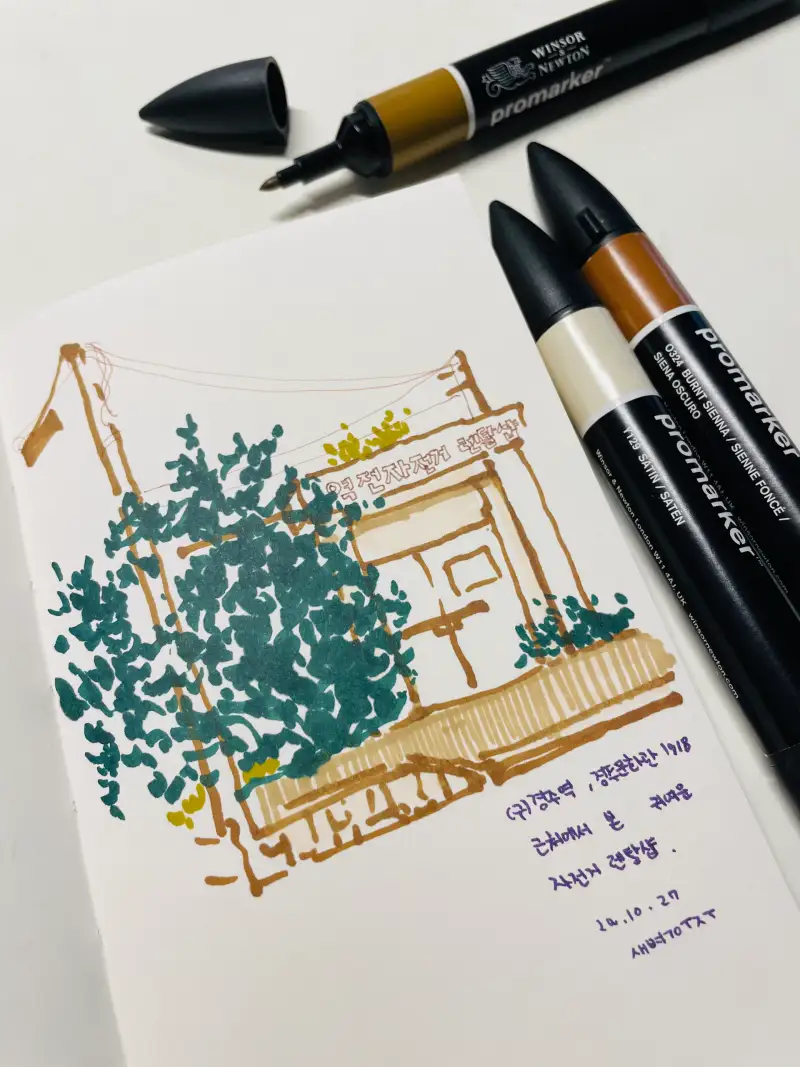 WINSOR
&
NEWTON
promarker™
promarker
O324 BURNT SIENNA / SIENNE FONCÉ /
SIENA OSCURO
promarker
Y129 SATIN / SATEN
Winsor & Newton London W11 4AJ, UK winsornewton.com
역전자전거 렌탈샵
(구)경주역, 경주문화관 1918
근처에서 본 귀여운
자전거 렌탈샵.
24.10.27